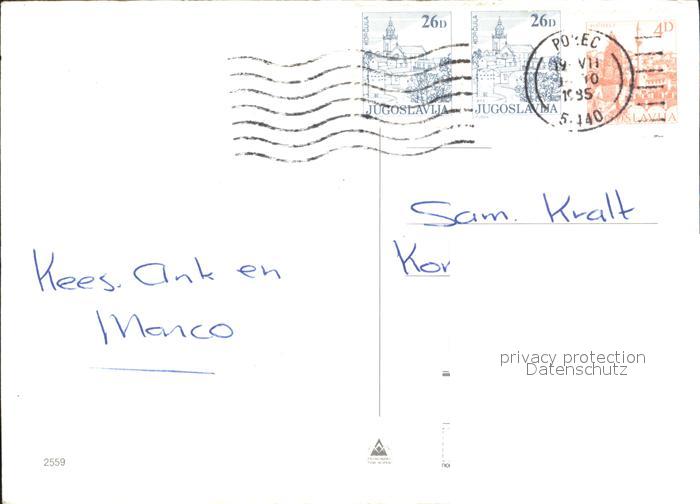 KORČULA 26D
JUGOSLAVIJA
KORČULA 26D
JUGOSLAVIJA
4D
JUGOSLAVIJA
POREČ
19 VII
10
1985
Sam. Kralt
Kor
Kees. Ank en
Marco
privacy protection
Datenschutz
2559